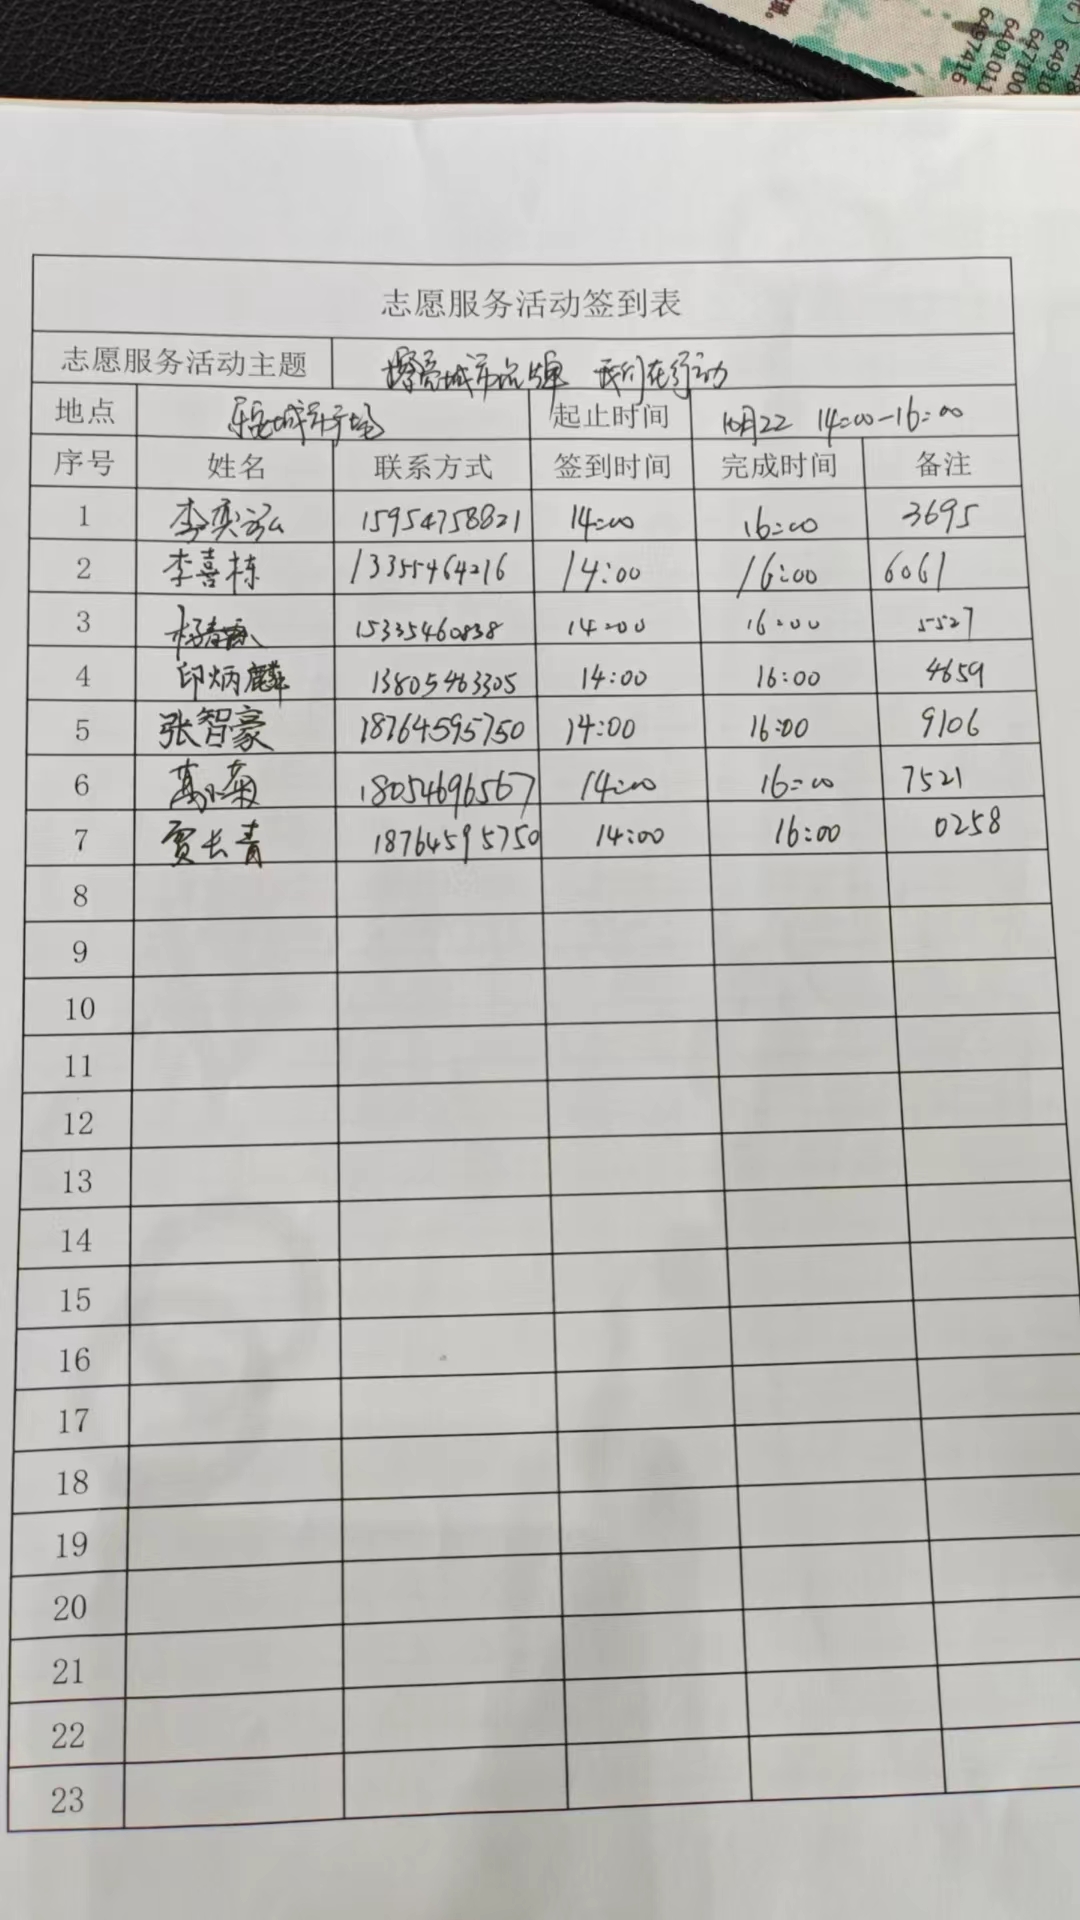 6491
647100
6401011
6497416
志愿服务活动签到表
志愿服务活动主题 擦亮城市品牌 我们在行动
地点 乐安城市广场 起止时间 10月22 14:00-16:00
序号 姓名 联系方式 签到时间 完成时间 备注
1 李奕泓 15954758821 14:00 16:00 3695
2 李喜栋 13355464216 14:00 16:00 6061
3 15335460838 14:00 16:00 5527
4 印炳麟 13805463305 14:00 16:00 4659
5 张智豪 18764595750 14:00 16:00 9106
6 18054696567 14:00 16:00 7521
7 贾长青 18764595750 14:00 16:00 0258
8
9
10
11
12
13
14
15
16
17
18
19
20
21
22
23